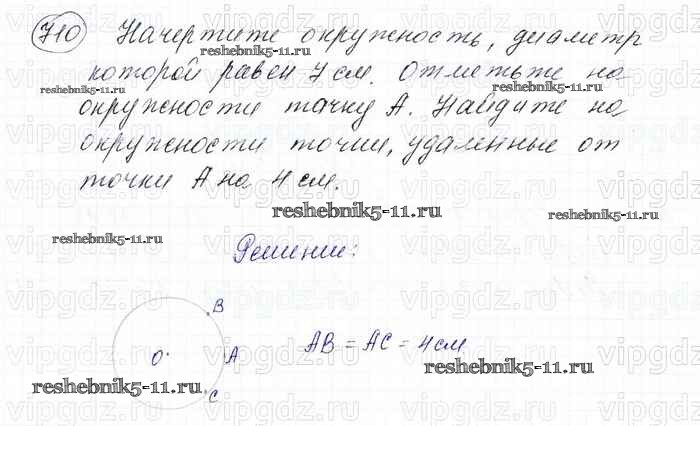 710 Начертите окружность, диаметр
которой равен 7 см. Отметьте на
окружности точку А. Найдите на
окружности точки, удалённые от
точки А на 4 см.
reshebnik5-11.ru
reshebnik5-11.ru
reshebnik5-11.ru
reshebnik5-11.ru
reshebnik5-11.ru
reshebnik5-11.ru
Решение:
В
О
А
С
АВ = АС = 4 см
reshebnik5-11.ru
reshebnik5-11.ru
vipgdz.ru